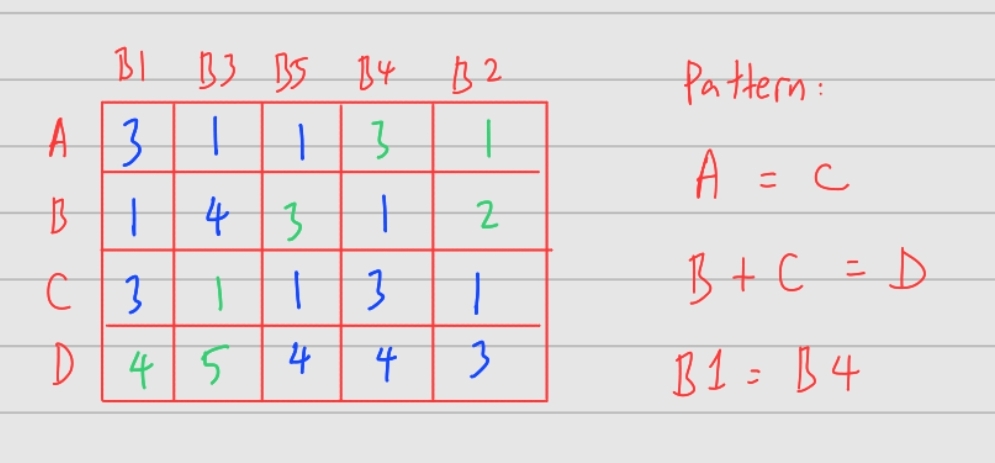 B1 B3 B5 B4 B2
A 3 1 1 3 1
B 1 4 3 1 2
C 3 1 1 3 1
D 4 5 4 4 3
Pattern:
A = C
B + C = D
B1 = B4